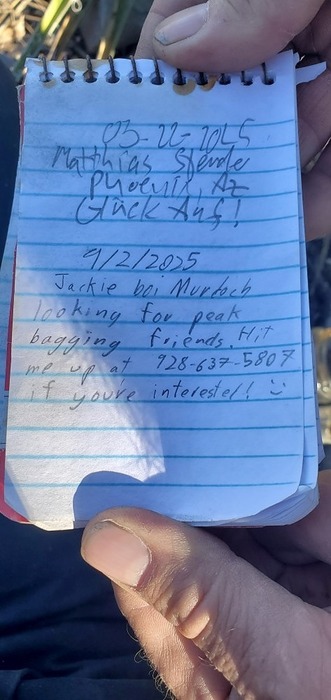 03-22-2025
Matthias Stender
Phoenix, Az
Glück Auf!
9/2/2025
Jackie boi Murtoch
looking for peak
bagging friends. Hit
me up at 928-637-5807
if you're interested! :)